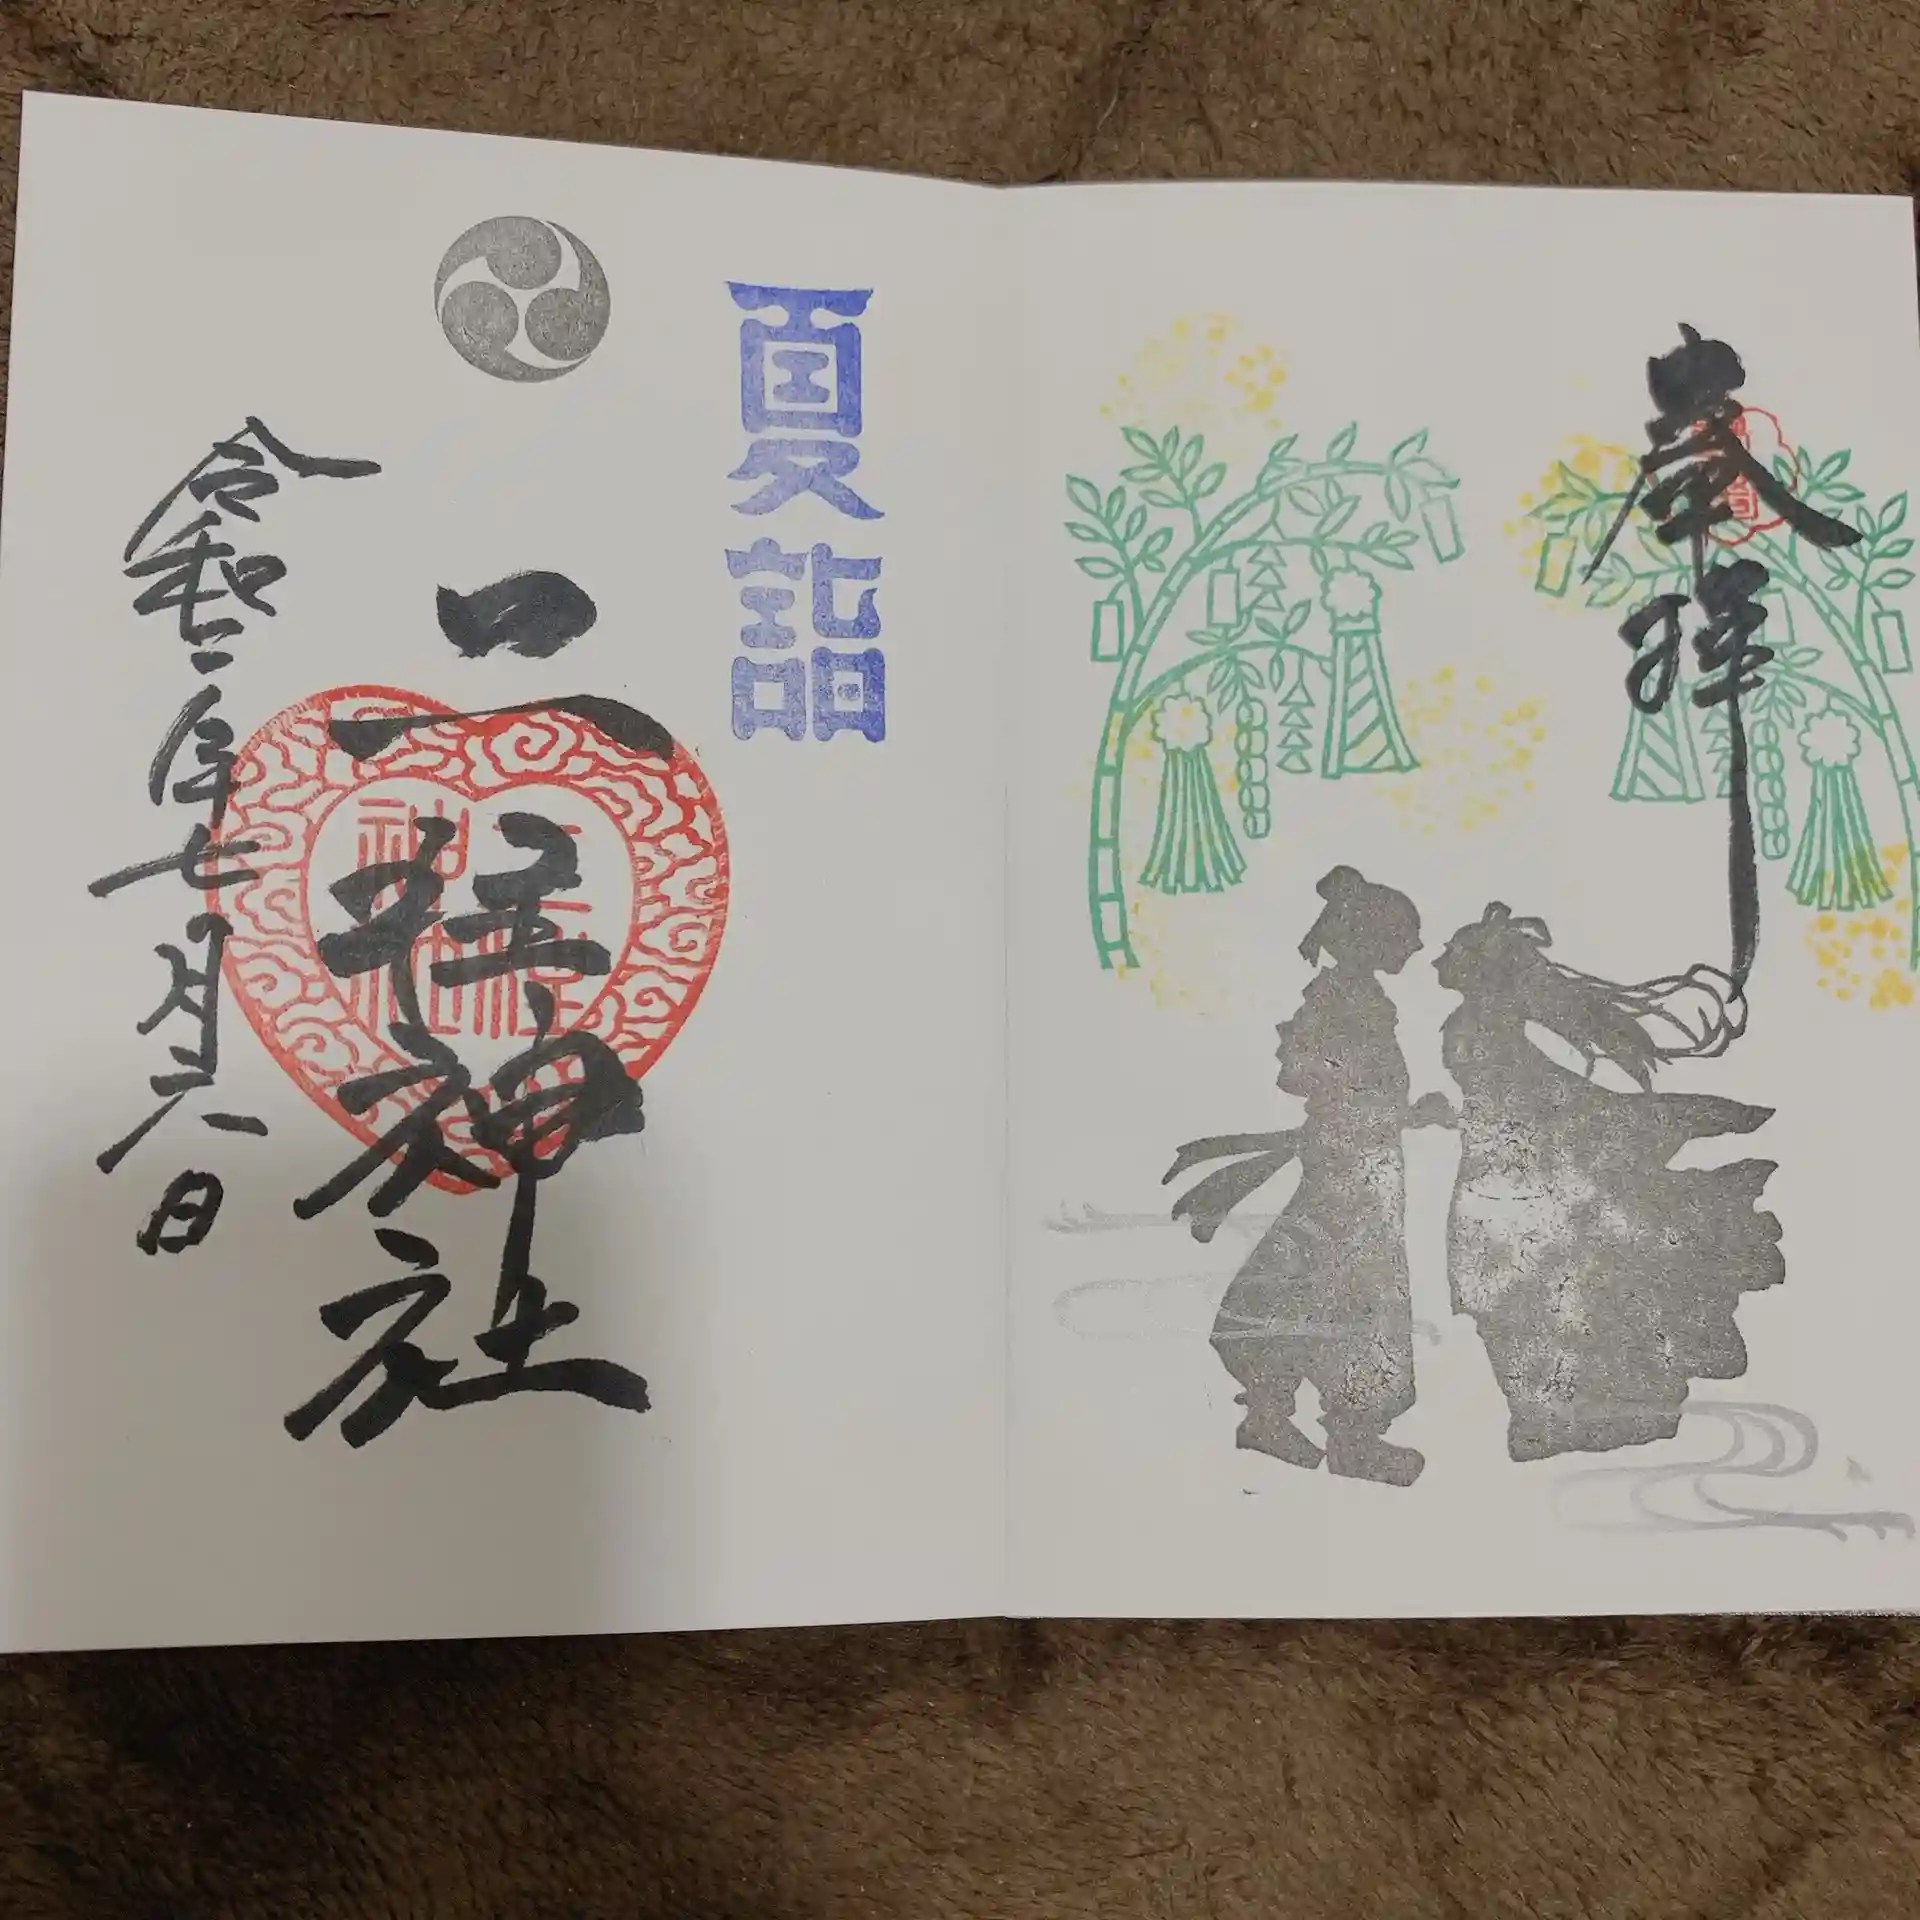 奉拝
夏詣
二柱神社
二柱
神社
令和二年七月六日